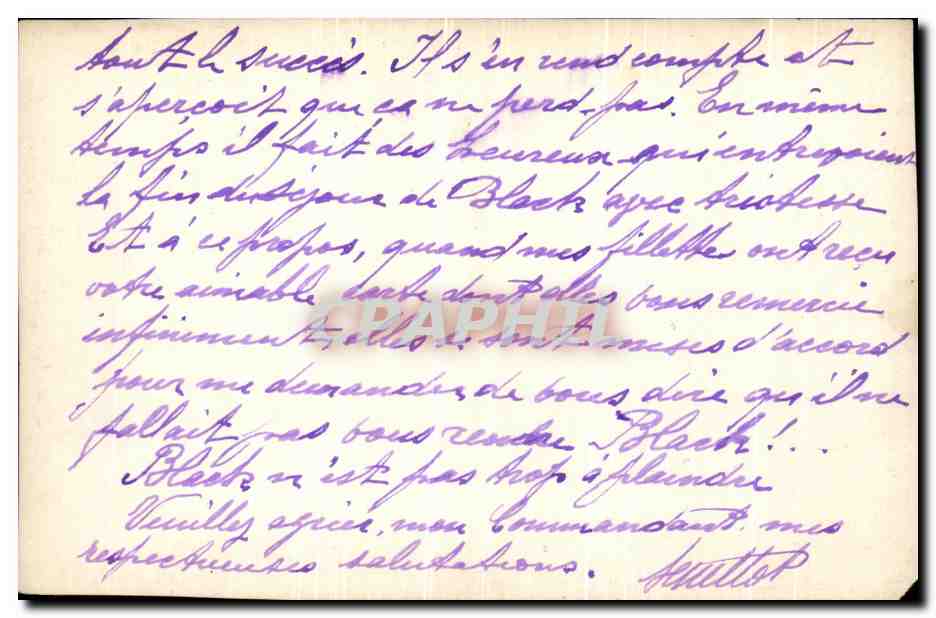 tout le succès. Il s'en rend compte et
s'aperçoit que ça ne perd pas. En même
temps il fait des heureux qui entrevoient
la fin du séjour de Black avec tristesse
Et à ce propos, quand mes fillettes ont reçu
votre aimable carte dont elles vous remercie
infiniment, elles se sont mises d'accord
CPAPHIL
pour me demander de vous dire qu'il ne
fallait pas vous rendre Black!...
Black n'est pas trop à plaindre
Veuillez agréer, mon Commandant mes
respectueuses salutations.